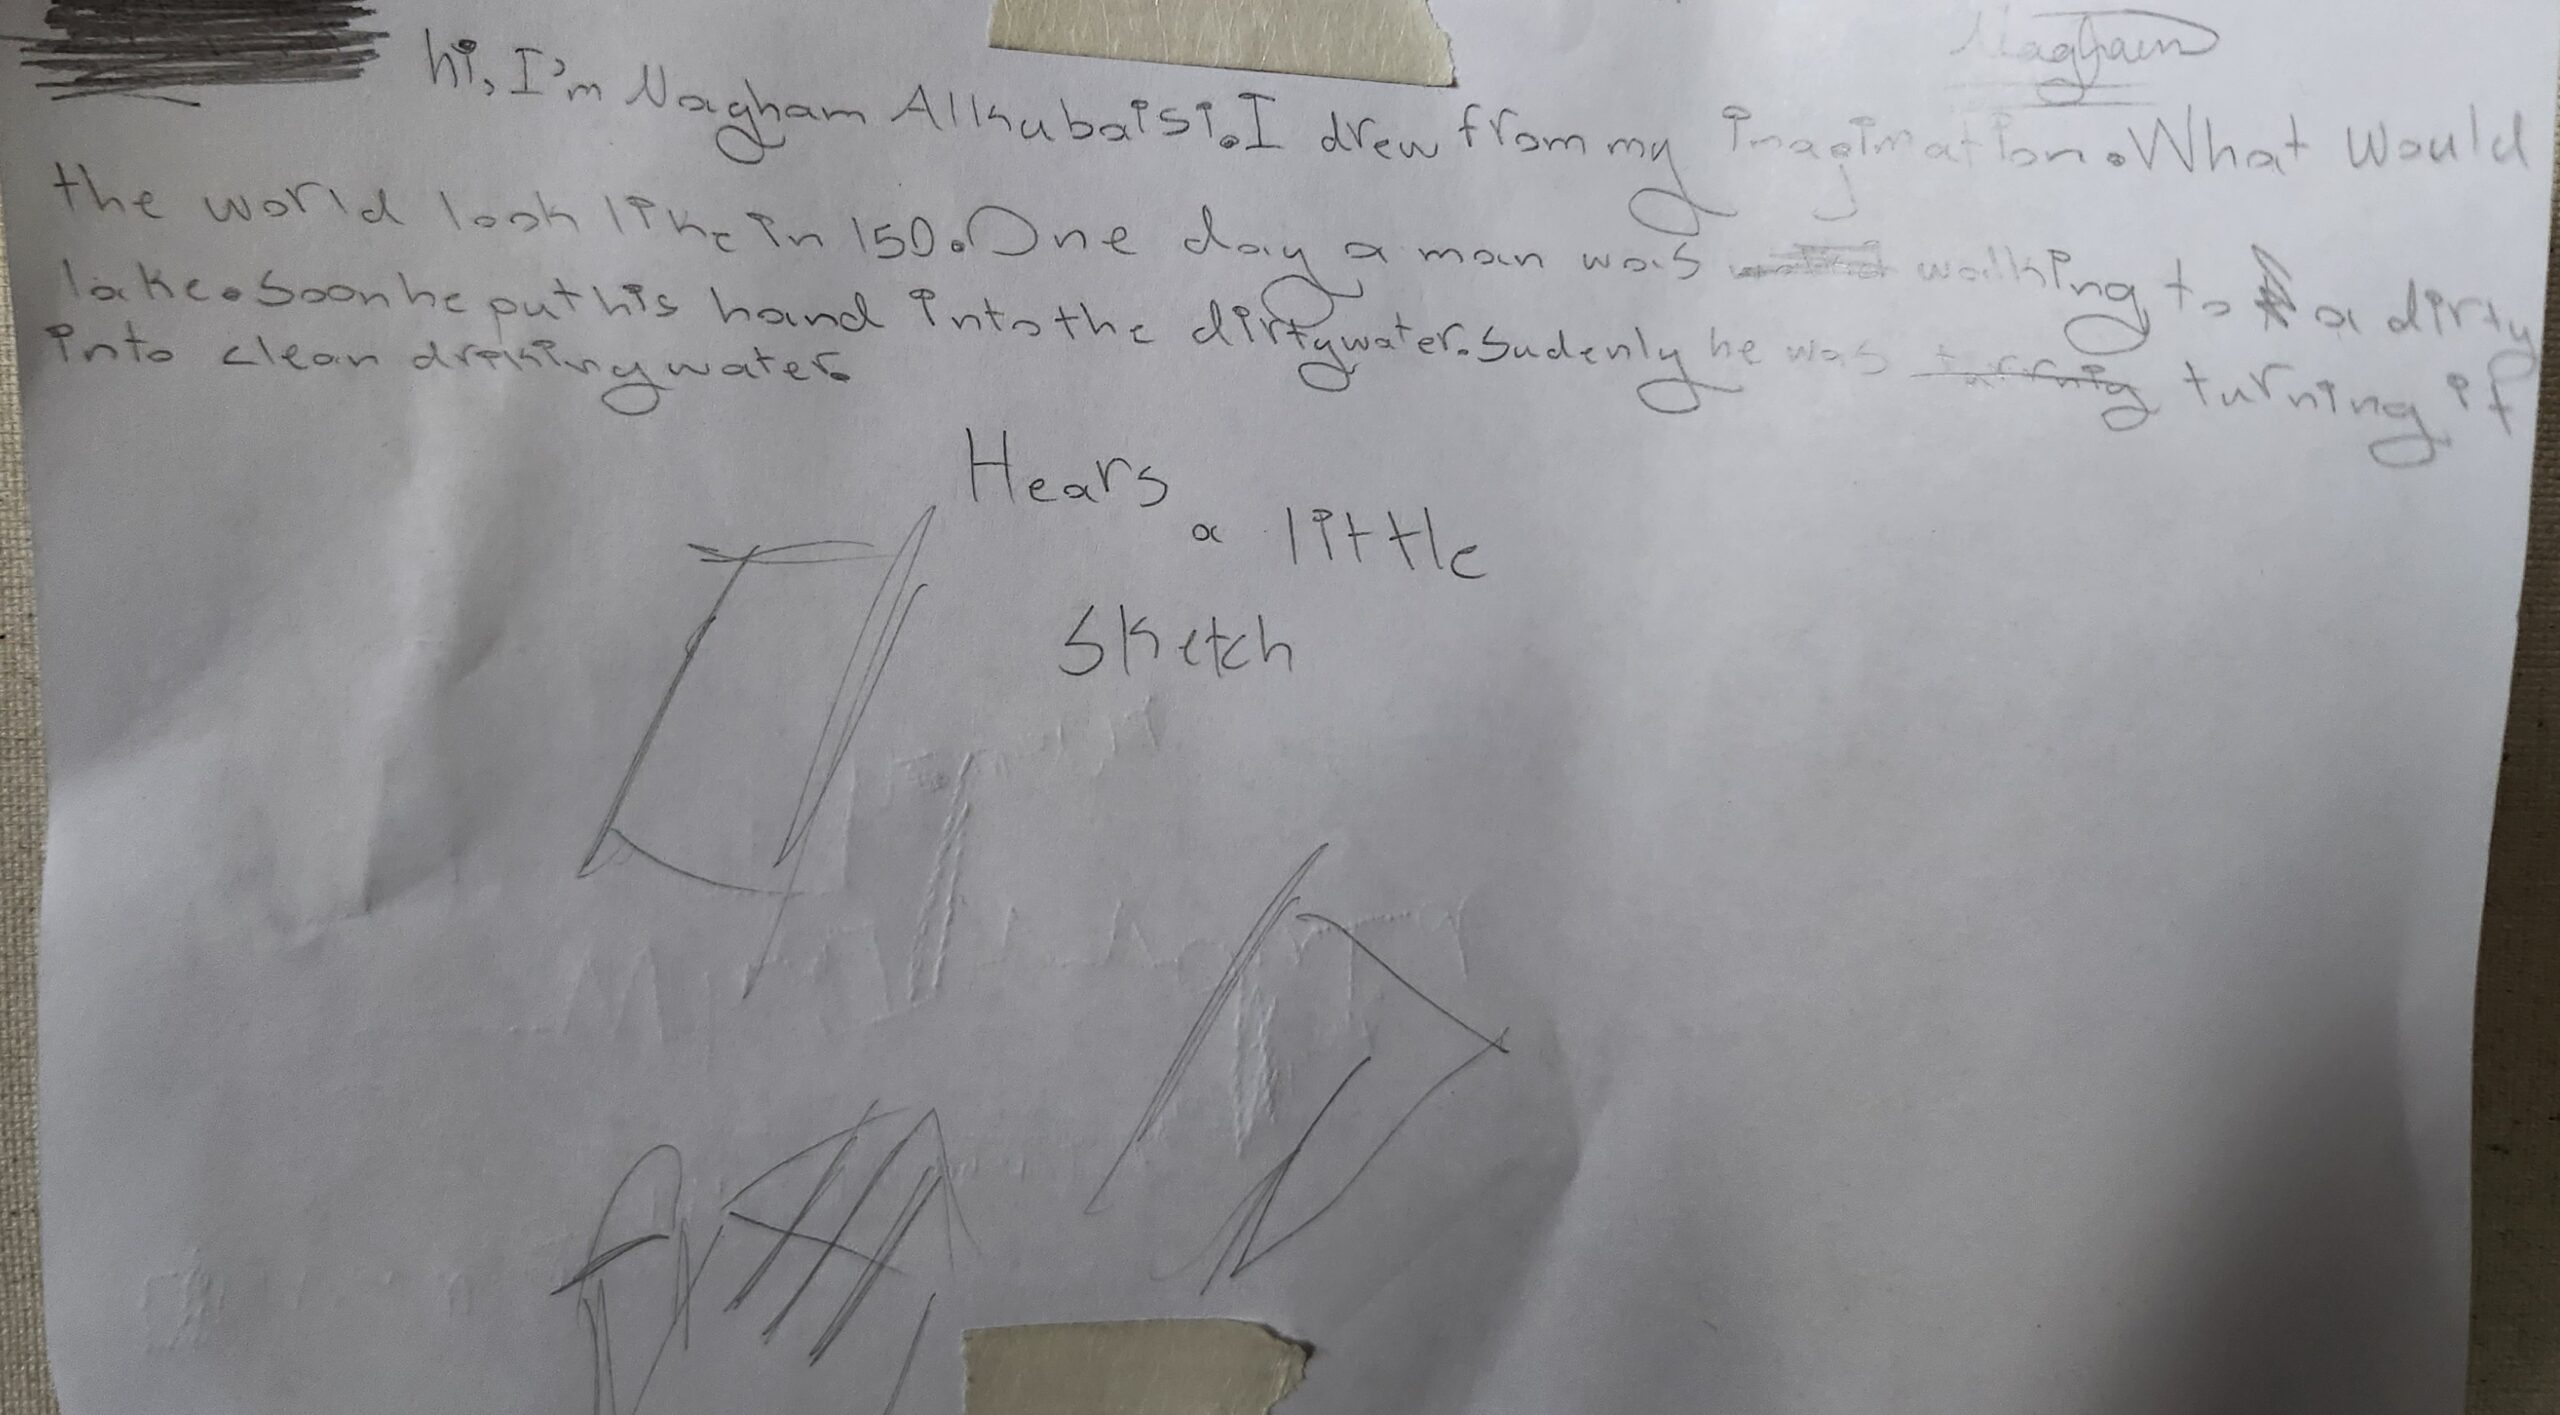 Nagham
hi, I'm Nagham Alkubaisi. I drew from my imagination. What would
the world look like in 150. One day a man was walking to a dirty
lake. Soon he put his hand into the dirty water. Sudenly he was turning it
into clean drinking water.
Hears
a little
Sketch